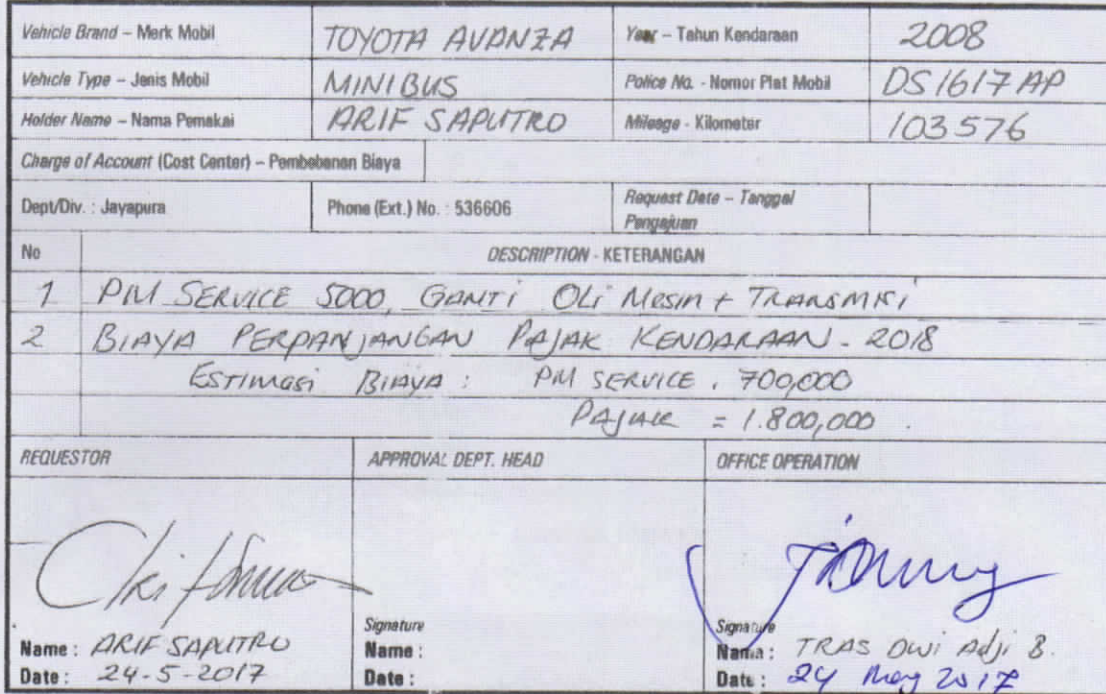 Vehicle Brand – Merk Mobil TOYOTA AVANZA Year – Tahun Kendaraan 2008
Vehicle Type – Jenis Mobil MINIBUS Police No. - Nomor Plat Mobil DS 1617 AP
Holder Name – Nama Pemakai ARIF SAPUTRO Mileage - Kilometer 103576
Charge of Account (Cost Center) – Pembebanan Biaya
Dept/Div. : Jayapura Phone (Ext.) No. : 536606 Request Date – Tanggal
Pengajuan
No DESCRIPTION - KETERANGAN
1 PM SERVICE 5000, GANTI OLI MESIN + TRANSMISI
2 BIAYA PERPANJANGAN PAJAK KENDARAAN - 2018
ESTIMASI BIAYA : PM SERVICE . 700,000
PAJAK = 1.800,000 .
REQUESTOR APPROVAL DEPT. HEAD OFFICE OPERATION
Signature Signature
Name : ARIF SAPUTRO Name : Nama : TRAS DWI Adji B.
Date : 24-5-2017 Date : Date : 24 May 2017